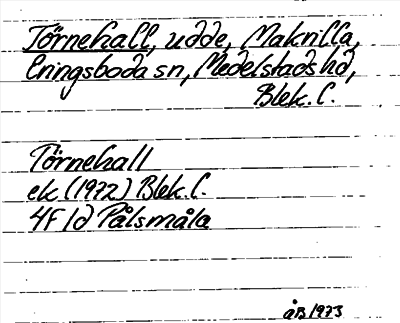 Törnehall, udde, Makrilla,
Eringsboda sn, Medelstads hd,
Blek. l.
Törnehall
ek (1972) Blek. l.
4F 1d Pålsmåla
ÅB 1973